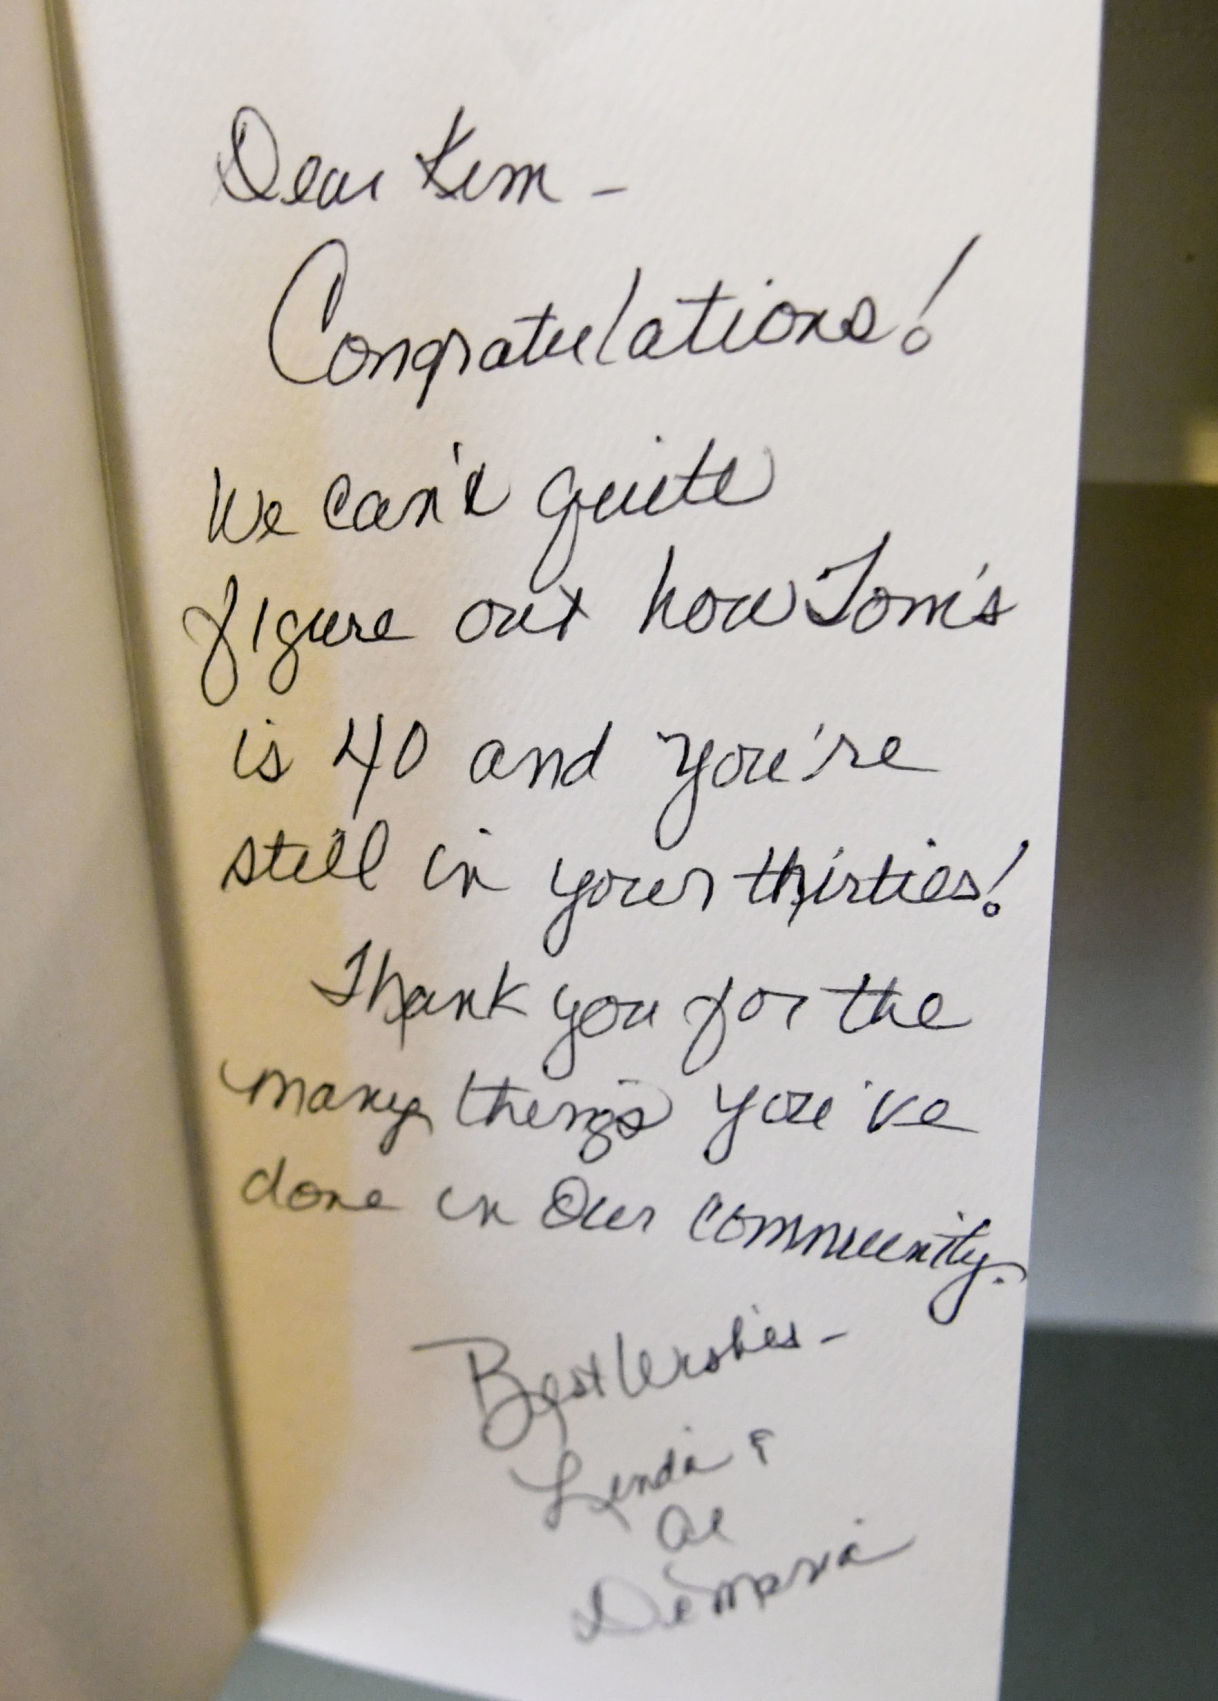 Dear Kim -
Congratulations!
We can't quite
figure out how Tom's
is 40 and you're
still in your thirties!
Thank you for the
many things you've
done in our community.
Best Wishes -
Linda &
Al